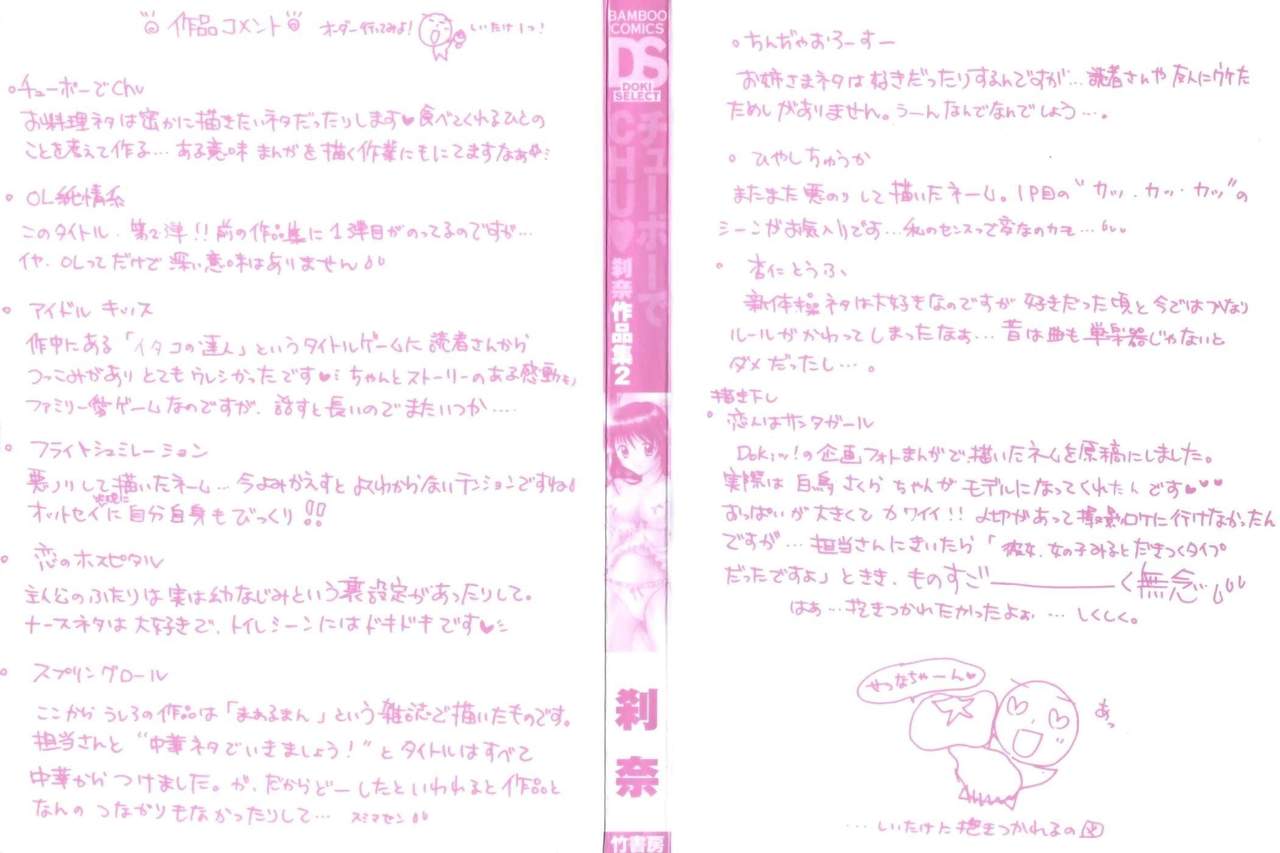 作品コメント
オーダー行ってみよ!
しいたけ1つ!
・チューボーでChu
お料理ネタは密かに描きたいネタだったりします♥食べてくれるひとの
ことを考えて作る…ある意味まんがを描く作業にもにてますなぁ
・OL純情系
このタイトル、第2弾!!前の作品集に1弾目がのってるのですが…
イヤ、OLってだけで深い意味はありません
・アイドルキッス
作中にある「イタコの達人」というタイトルゲームに読者さんから
つっこみがありとてもウレシかったです♥ちゃんとストーリーのある感動も
ファミリー愛ゲームなのですが、話すと長いのでまたいつか….
・フライトシュミレーション
悪ノリして描いたネーム…今よみかえすとよくわからないテンションですね
オットセイに自分自身もびっくり!!
・恋のホスピタル
主人公のふたりは実は幼なじみという裏設定があったりして。
ナースネタは大好きで、トイレシーンにはドキドキです♥
・スプリングロール
ここからうしろの作品は「まぁるまん」という雑誌で描いたものです。
担当さんと“中華ネタでいきましょう!”とタイトルはすべて
中華からつけました。が、だからどーしたといわれると作品と
なんのつながりもなかったりして… スミマセン
BAMBOO
COMICS
DS
DOKI
SELECT
チューボーで
CHU♥
刹奈作品集2
刹奈
竹書房
・ちんぢゃおろーすー
お姉さまネタは好きだったりするんですが…読者さんや友人にウケた
ためしがありません。うーんなんでなんでしょう…。
・ひやしちゅうか
またまた悪のりして描いたネーム。1P目の“カッ・カッ・カッ”の
シーンがお気入りです…私のセンスって変なのかモ…
・杏仁とうふ
新体操ネタは大好きなのですが好きだった頃と今ではかなり
ルールがかわってしまったなぁ…昔は曲も単楽器じゃないと
ダメだったし…。
描き下し
・恋人はサンタガール
Dokiッ!の企画フォトまんがで、描いたネームを原稿にしました。
実際は白鳥さくらちゃんがモデルになってくれたんです♥♥♥
おっぱいが大きくてカワイイ!!〆切があって撮影ロケに行けなかったん
ですが…担当さんにきいたら「彼女、女の子みるとだきつくタイプ
だったですよ」ときき、ものすごーーーく無念…
はぁ…抱きつかれたかったよぉ…しくしく。
せつなちゃーん♥
あっ
…しいたけに抱きつかれるの図